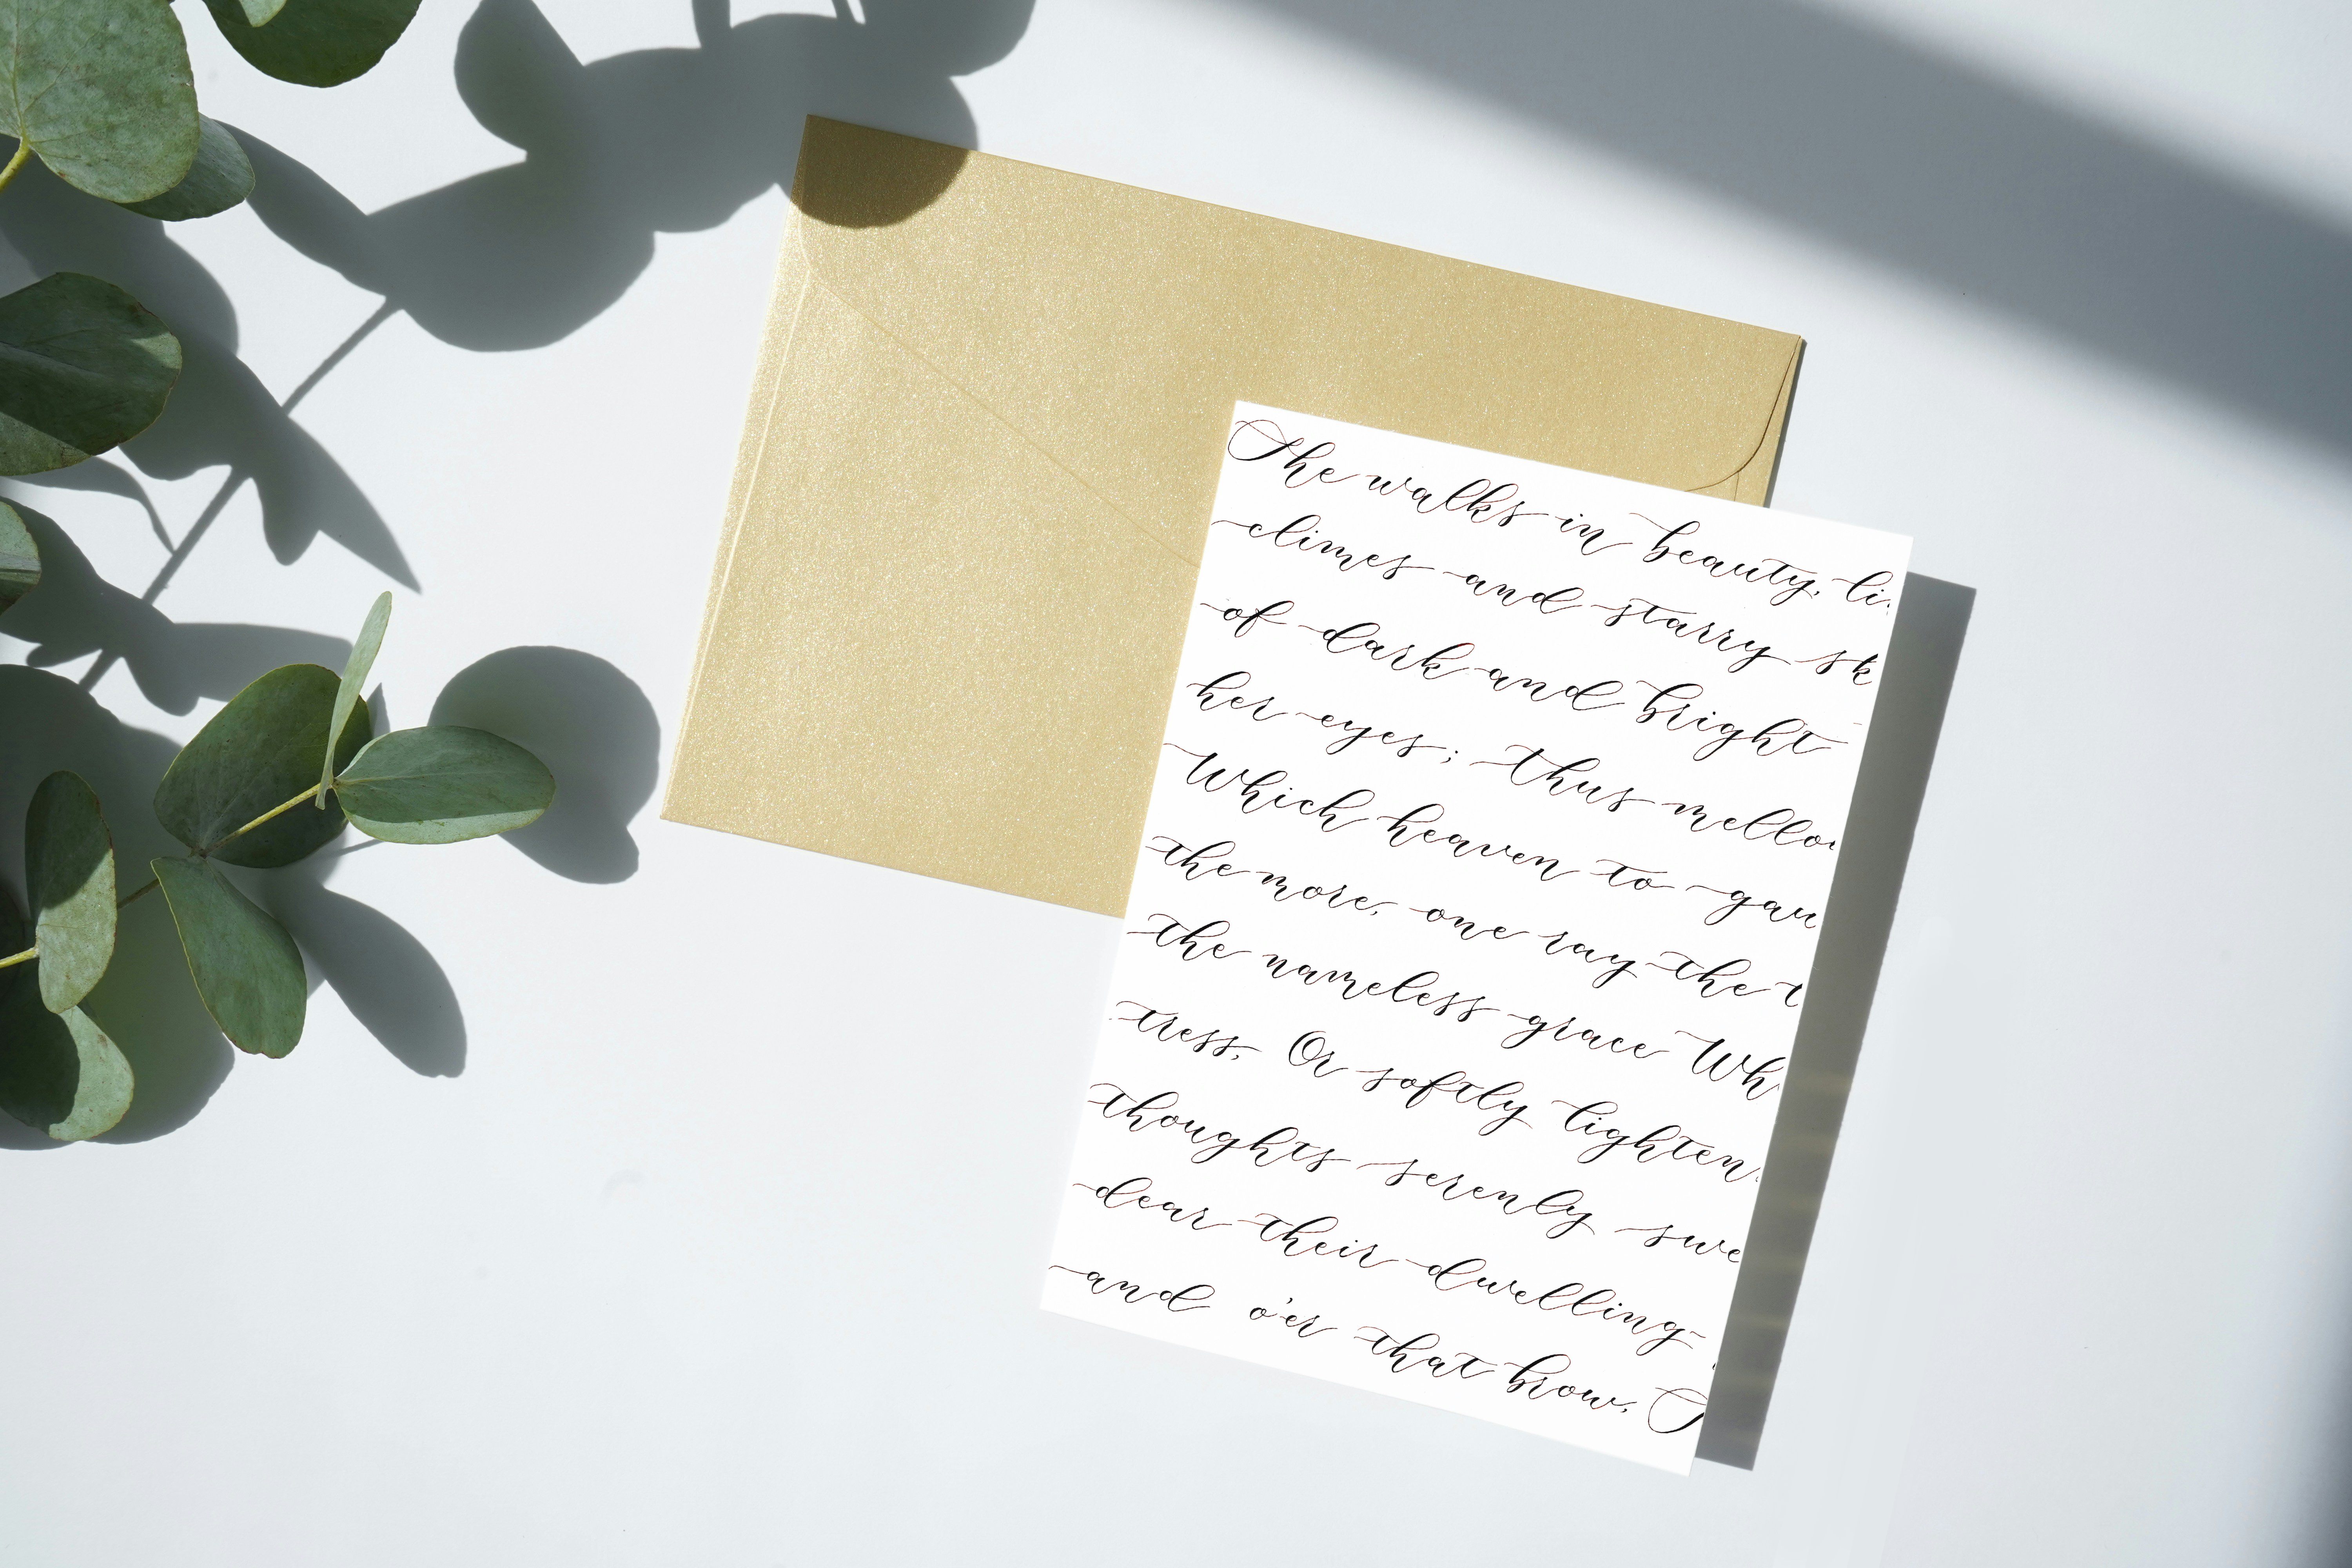 She walks in beauty, li
climes and starry sk
of dark and bright
her eyes; thus mello
Which heaven to gau
the more, one ray the
the nameless grace Wh
tress, Or softly lighten
thoughts serenly swe
dear their dwelling-
and o'er that brow,